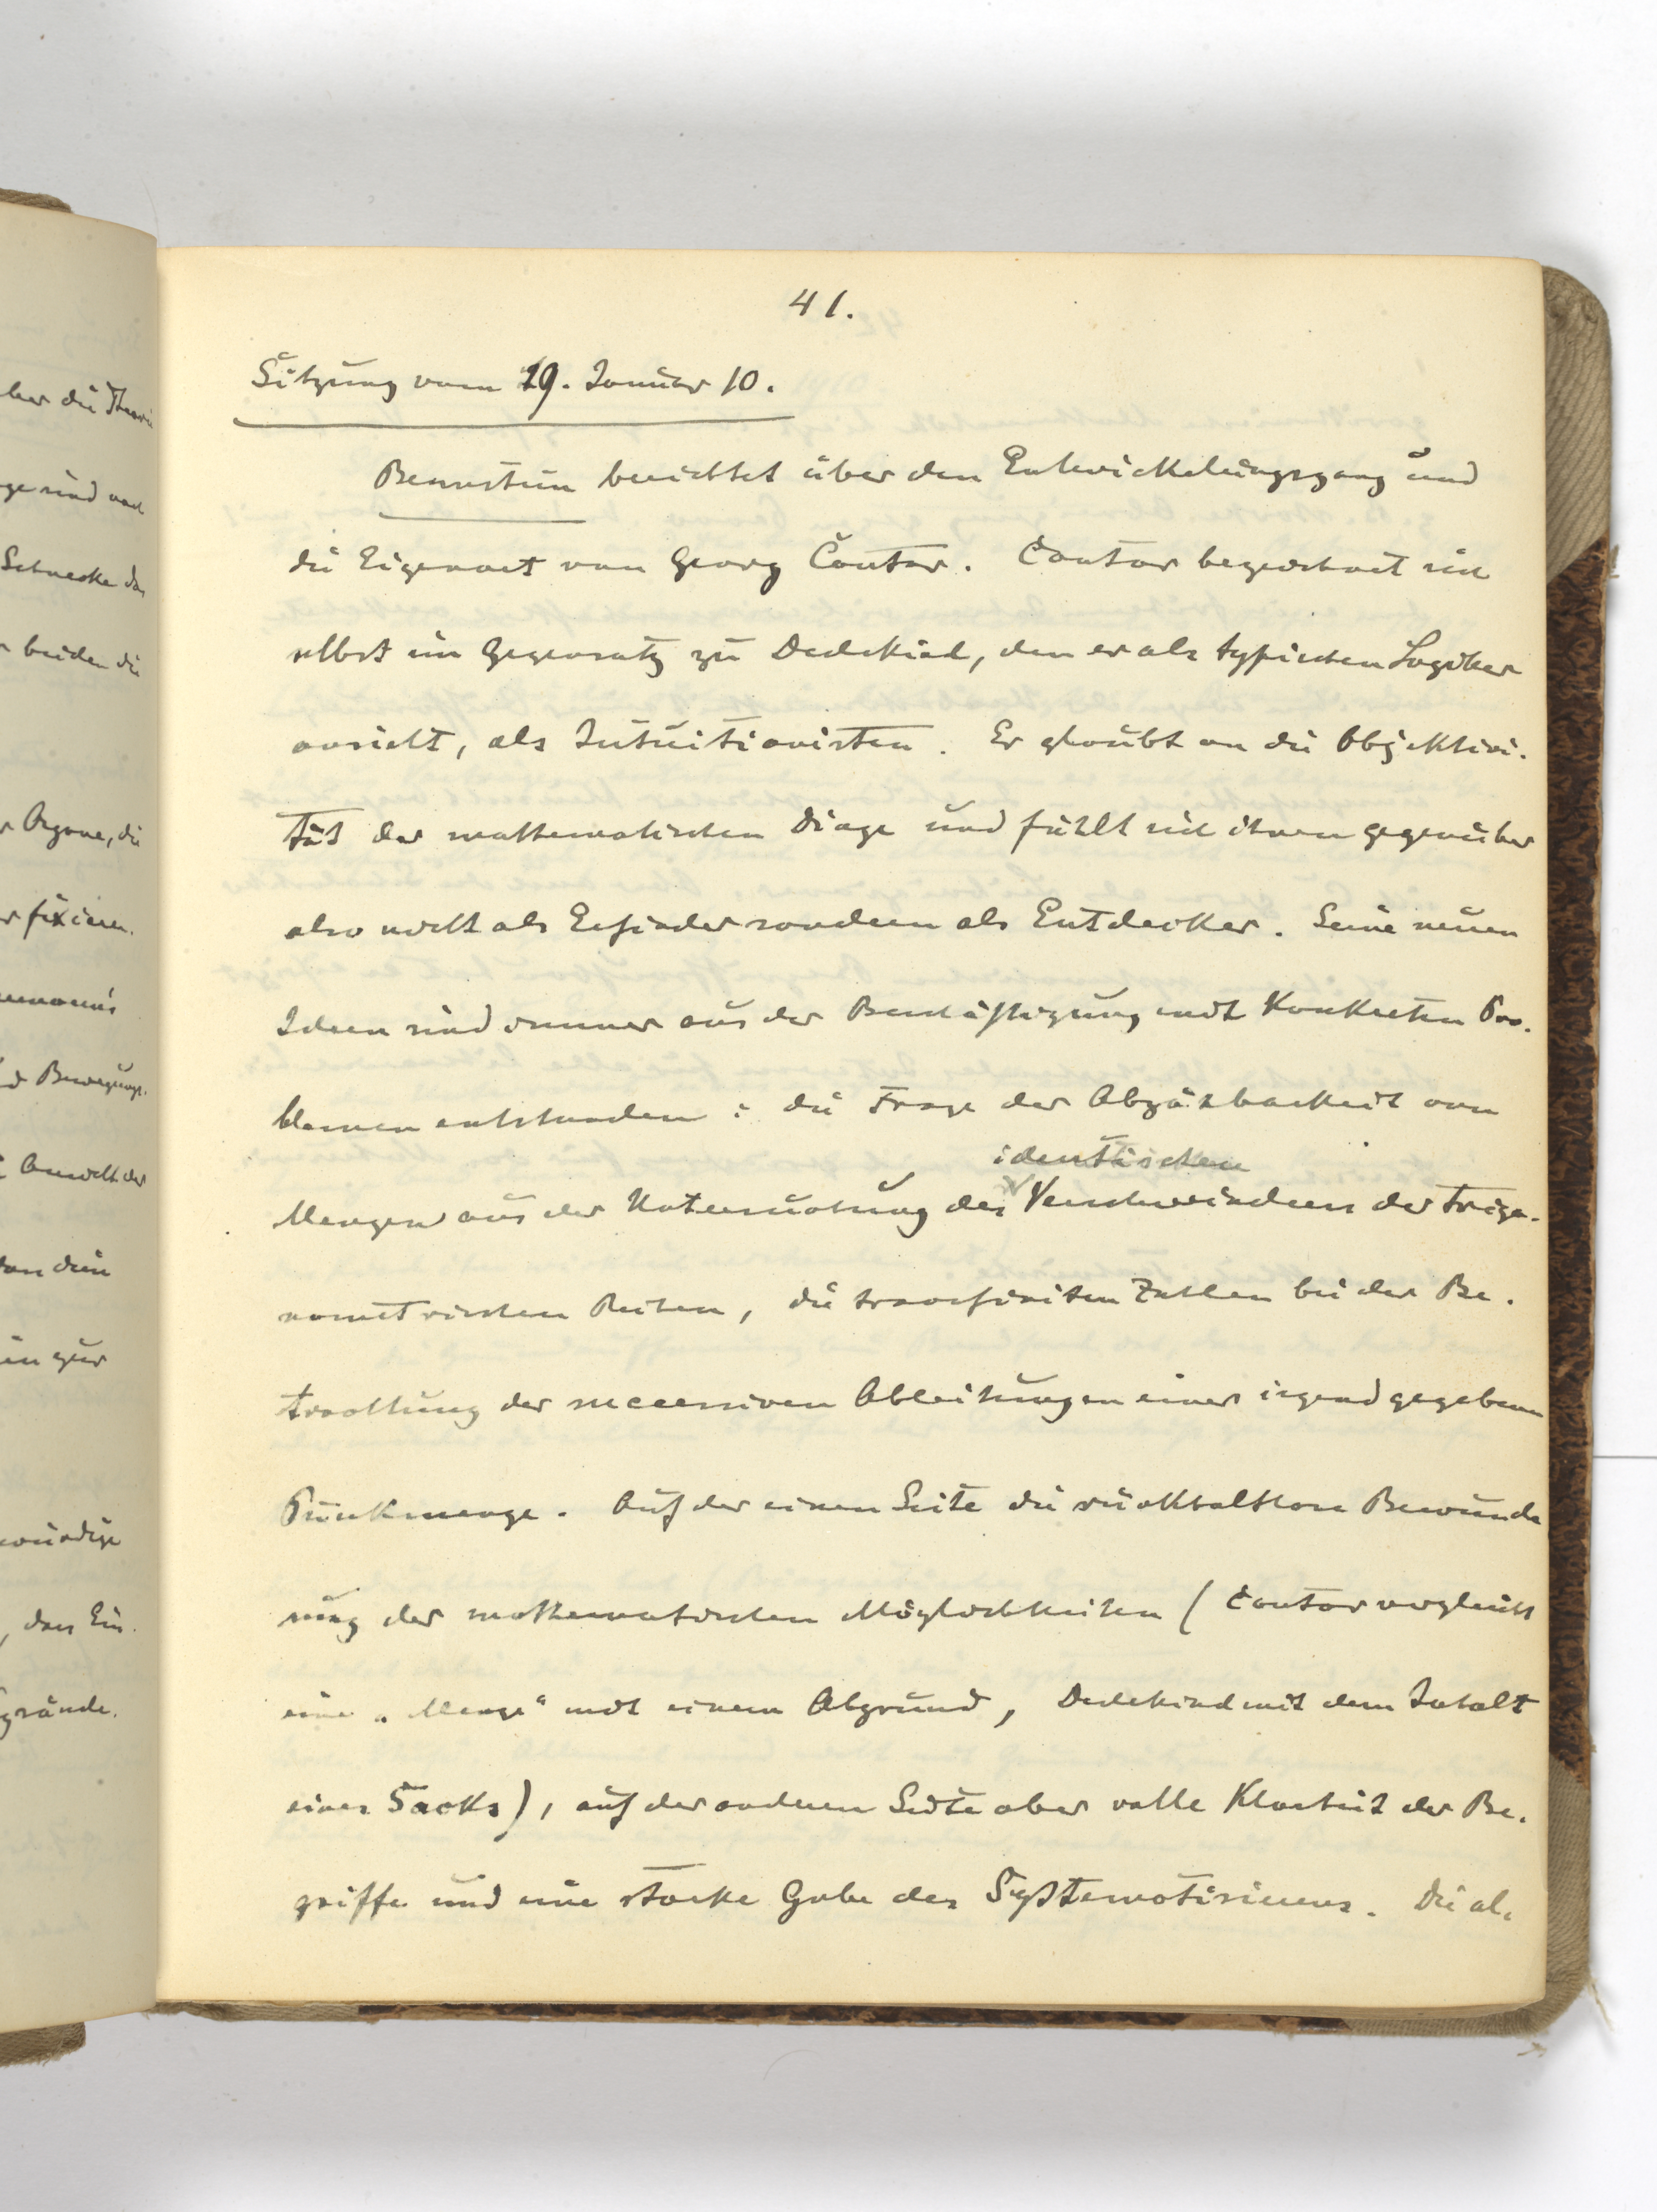 41.
Sitzung vom 19. Januar 10.
Bernstein berichtet über den Entwickelungsgang und
die Eigenart von Georg Cantor. Cantor bezeichnet sich
selbst im Gegensatz zu Dedekind, den er als typischen Logiker
ansieht, als Intuitionisten. Er glaubt an die Objektivi-
tät der mathematischen Dinge und fühlt sich ihnen gegenüber
also nicht als Erfinder sondern als Entdecker. Seine neuen
Ideen sind immer aus der Beschäftigung mit konkreten Pro-
blemen entstanden: die Frage der Abzählbarkeit von
identischen
Mengen aus der Untersuchung des Verschwindens der trigo-
nometrischen Reihen, die transfiniten Zahlen bei der Be-
trachtung der successiven Ableitungen einer irgend gegebenen
Punkmenge. Auf der einen Seite die rückhaltlose Bewunde
rung der mathematischen Möglichkeiten (Cantor vergleicht
eine „Menge“ mit einem Abgrund, Dedekind mit dem Inhalt
eines Sacks), auf der anderen Seite aber volle Klarheit der Be-
griffe und eine starke Gabe des Systematisierens. Die al-
ber die Theorie
ge sind von
Schnecke das
beiden die
Organe, die
fixieren.
d Bewegungs-
Anwalt der
in zur
würdige
, dass Ein-
gründe.